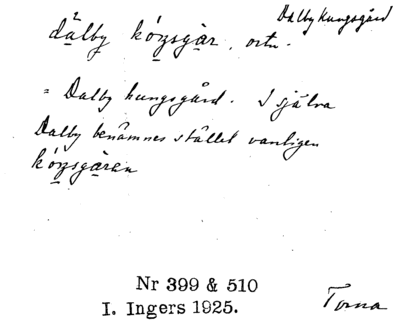 Dalby Kungsgård
dalby kóŋsgàr, ortn.
= Dalby kungsgård. I själva
Dalby benämnes stället vanligen
kóŋsgàren
Nr 399 & 510
I. Ingers 1925.
Torna